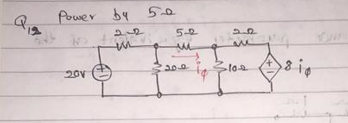 Q12 Power by 5Ω
2Ω 5Ω 2Ω
20V 20Ω iφ 10Ω 8 iφ